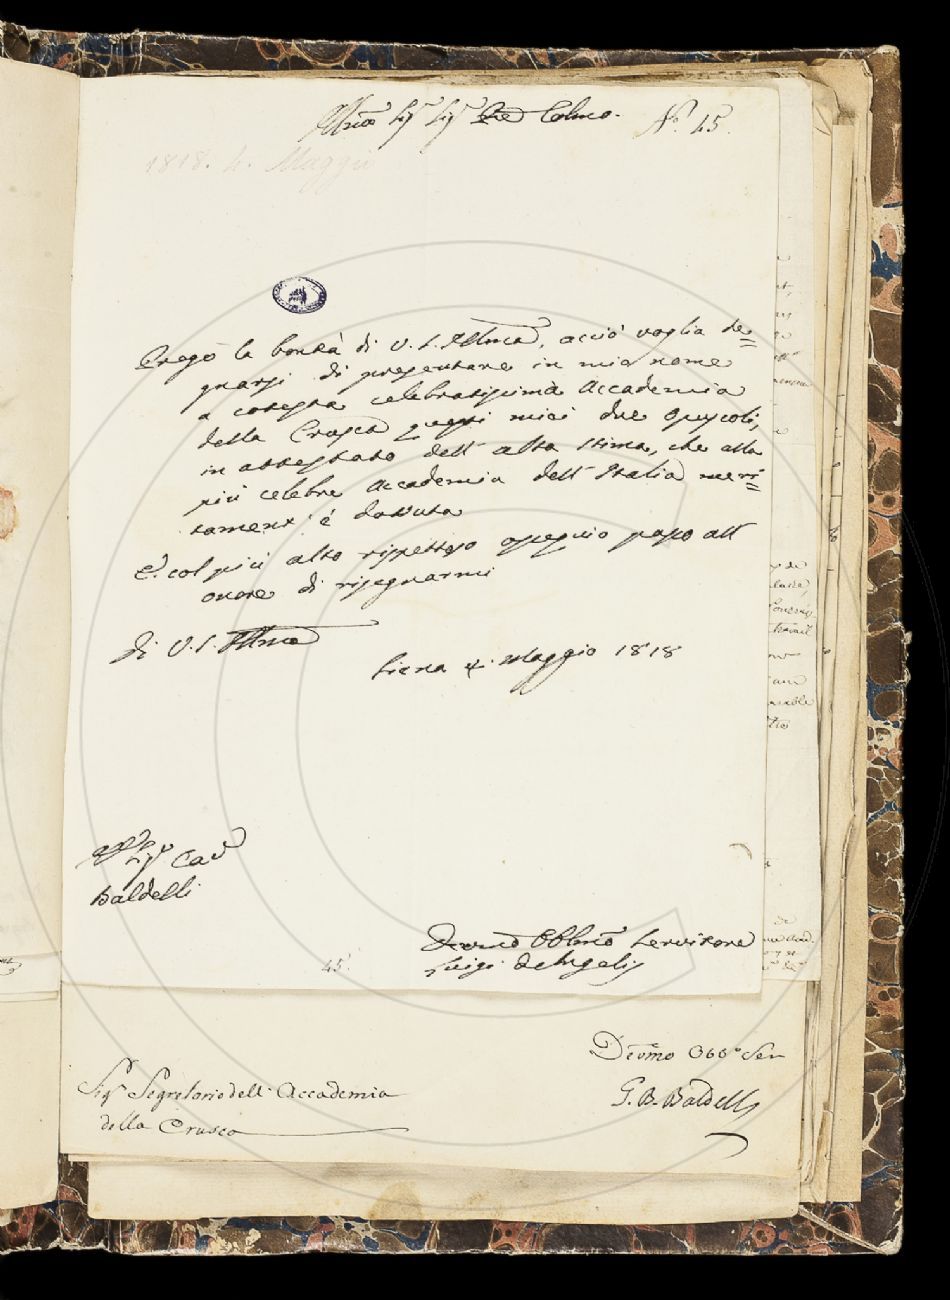 Illmo Sig.r Sig.r Pne Colmo.
N.o 45.
1818. 4. Maggio
Prego la bontà di V. S. Illma, acciò voglia de=
gnarsi di presentare in mio nome
a cotesta celebratissima Accademia
della Crusca questi miei due opuscoli,
in attestato dell' alta stima, che alla
più celebre Accademia dell' Italia meri=
tament. è dovuta
E col più alto rispettoso ossequio passo all'
onore di rissegnarmi
Di V. S. Illma
Siena 4. Maggio 1818
Sig.r Cav.
Baldelli
Devmo Obblmo Servitore
Luigi De Angelis
45.
Devmo Obb.o Ser
G. B. Baldelli
Sig.r Segretario dell' Accademia
della Crusca